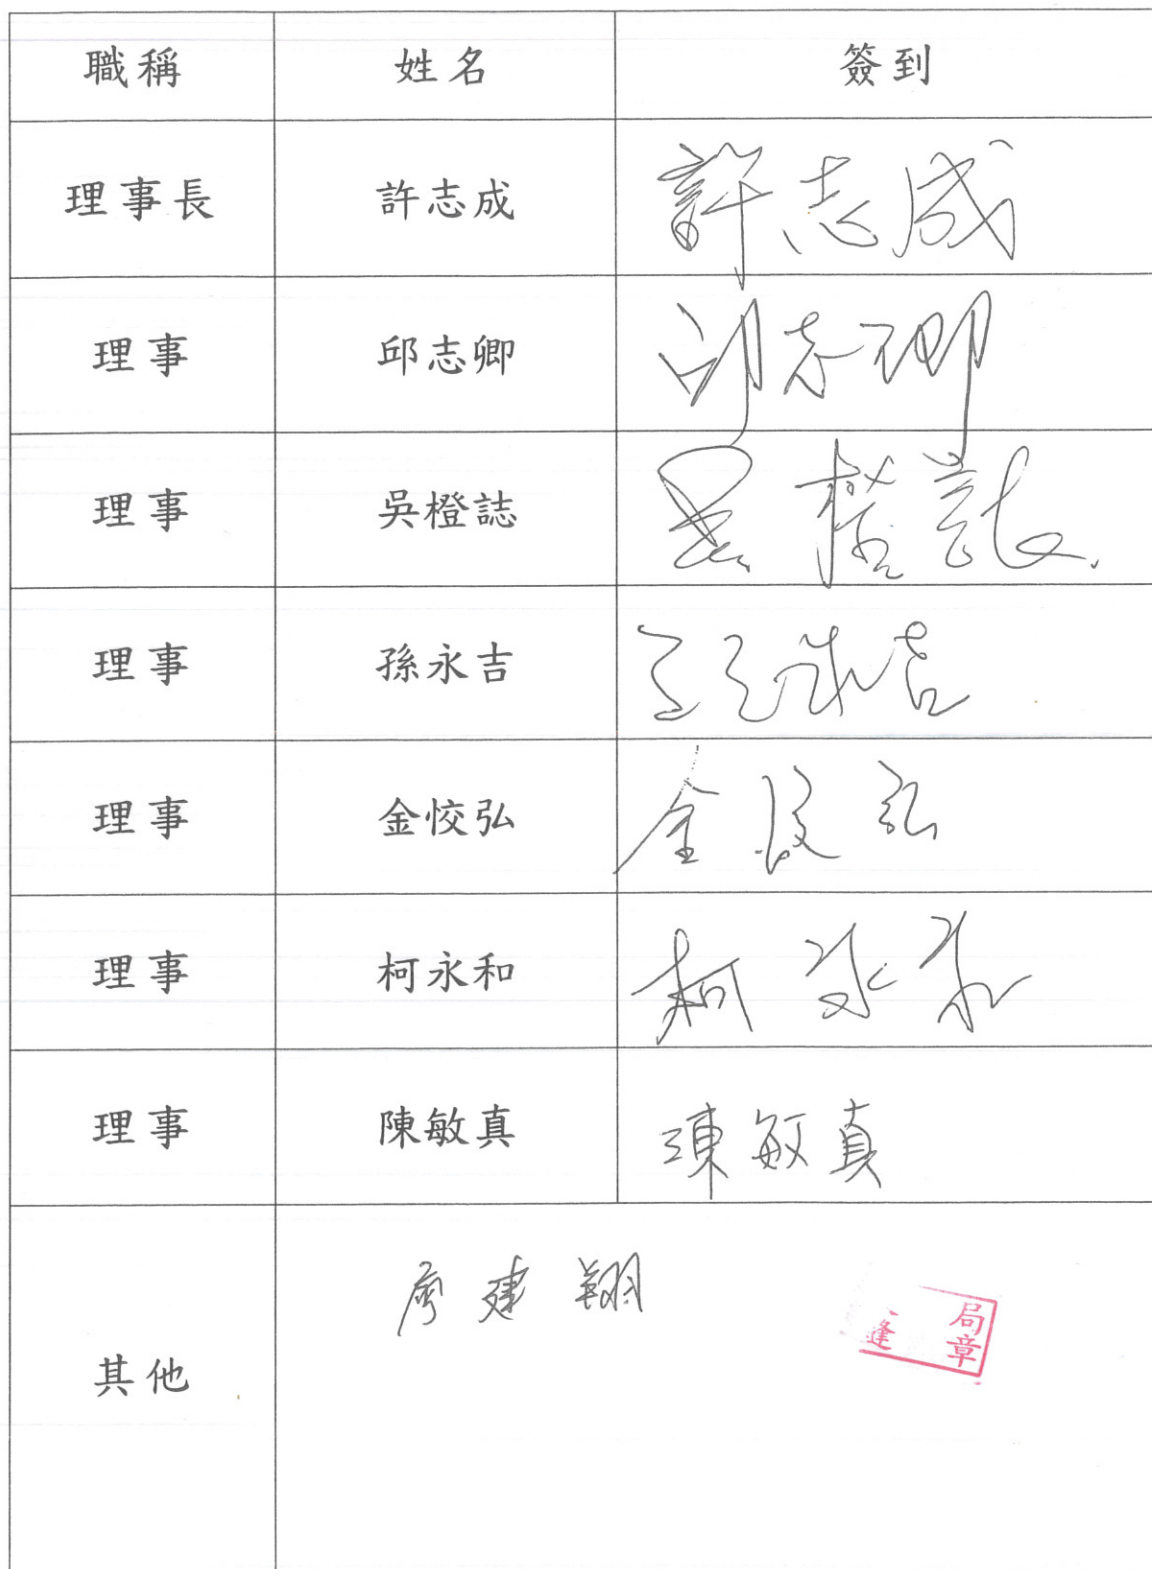 職稱 姓名 簽到
理事長 許志成 許志成
理事 邱志卿 邱志卿
理事 吳橙誌 吳橙誌
理事 孫永吉 孫永吉
理事 金恔弘 金恔弘
理事 柯永和 柯永和
理事 陳敏真 陳敏真
其他 廖建翔
局章
逢